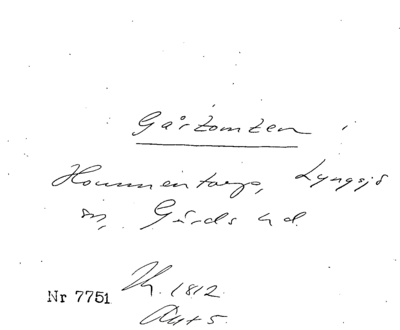 Gårtomten i
Hommentorp, Lyngsjö
sn, Gärds hd.
Nr 7751
Th. 1812
Akt 5.